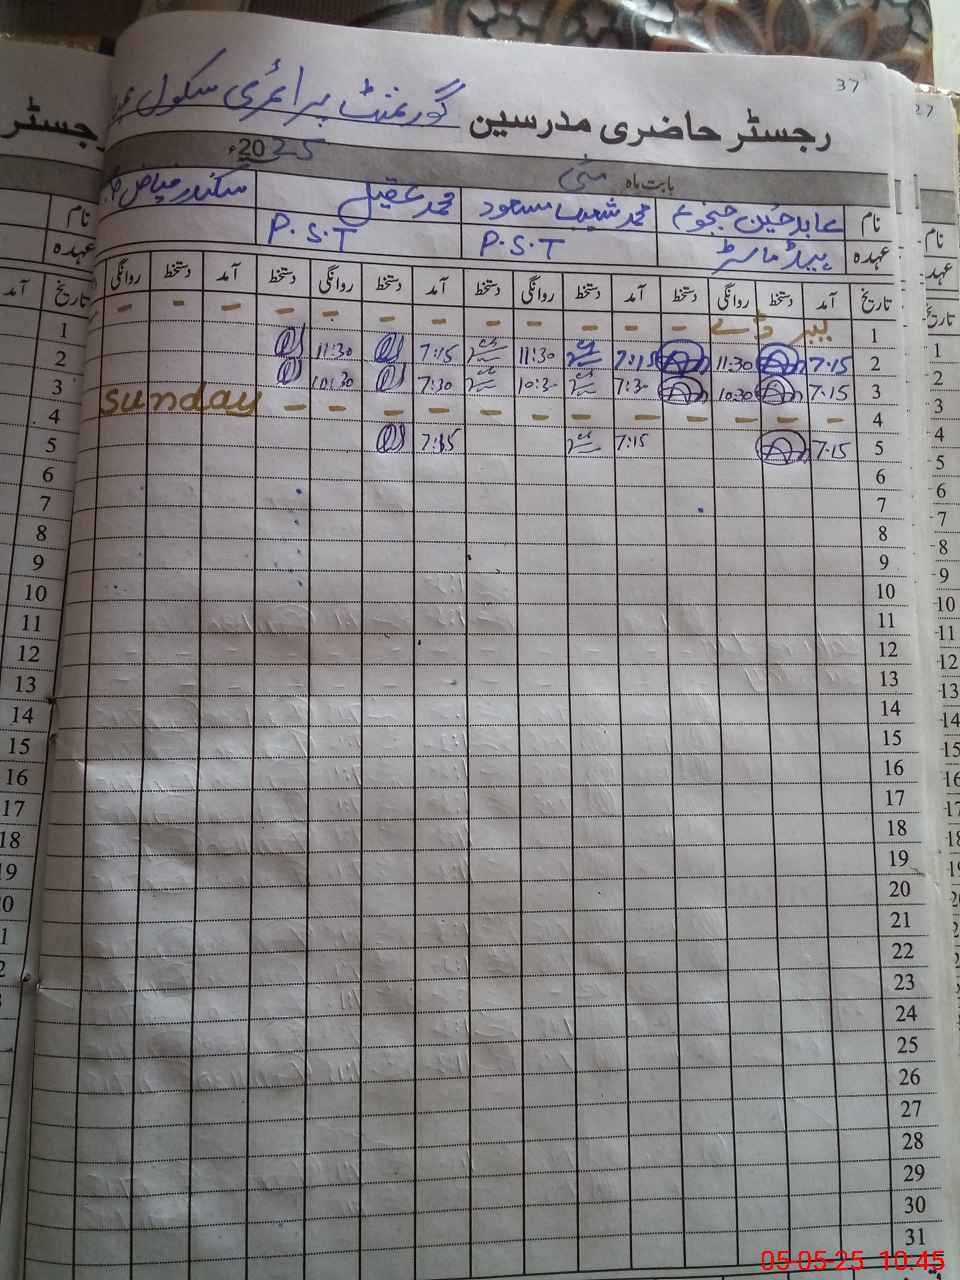 37
رجسٹر حاضری مدرسین گورنمنٹ پرائمری سکول
بابت ماہ مئی 2025ء
نام عابد حسین جنجوعہ محمد شعیب مسعود محمد عقیل سکندر
عہدہ ہیڈ ماسٹر P.S.T P.S.T
تاریخ آمد دستخط روانگی دستخط آمد دستخط روانگی دستخط آمد دستخط روانگی دستخط آمد دستخط روانگی
1 لیبر ڈے - - - - - - - - - - - -
2 7:15 11:30 7:15 11:30 7:15 11:30
3 7:15 10:30 7:30 10:30 7:30 10:30
4 - - - - - - - - - - - - Sunday
5 7:15 7:15 7:15
6
7
8
9
10
11
12
13
14
15
16
17
18
19
20
21
22
23
24
25
26
27
28
29
30
31
05-05-25 10:45